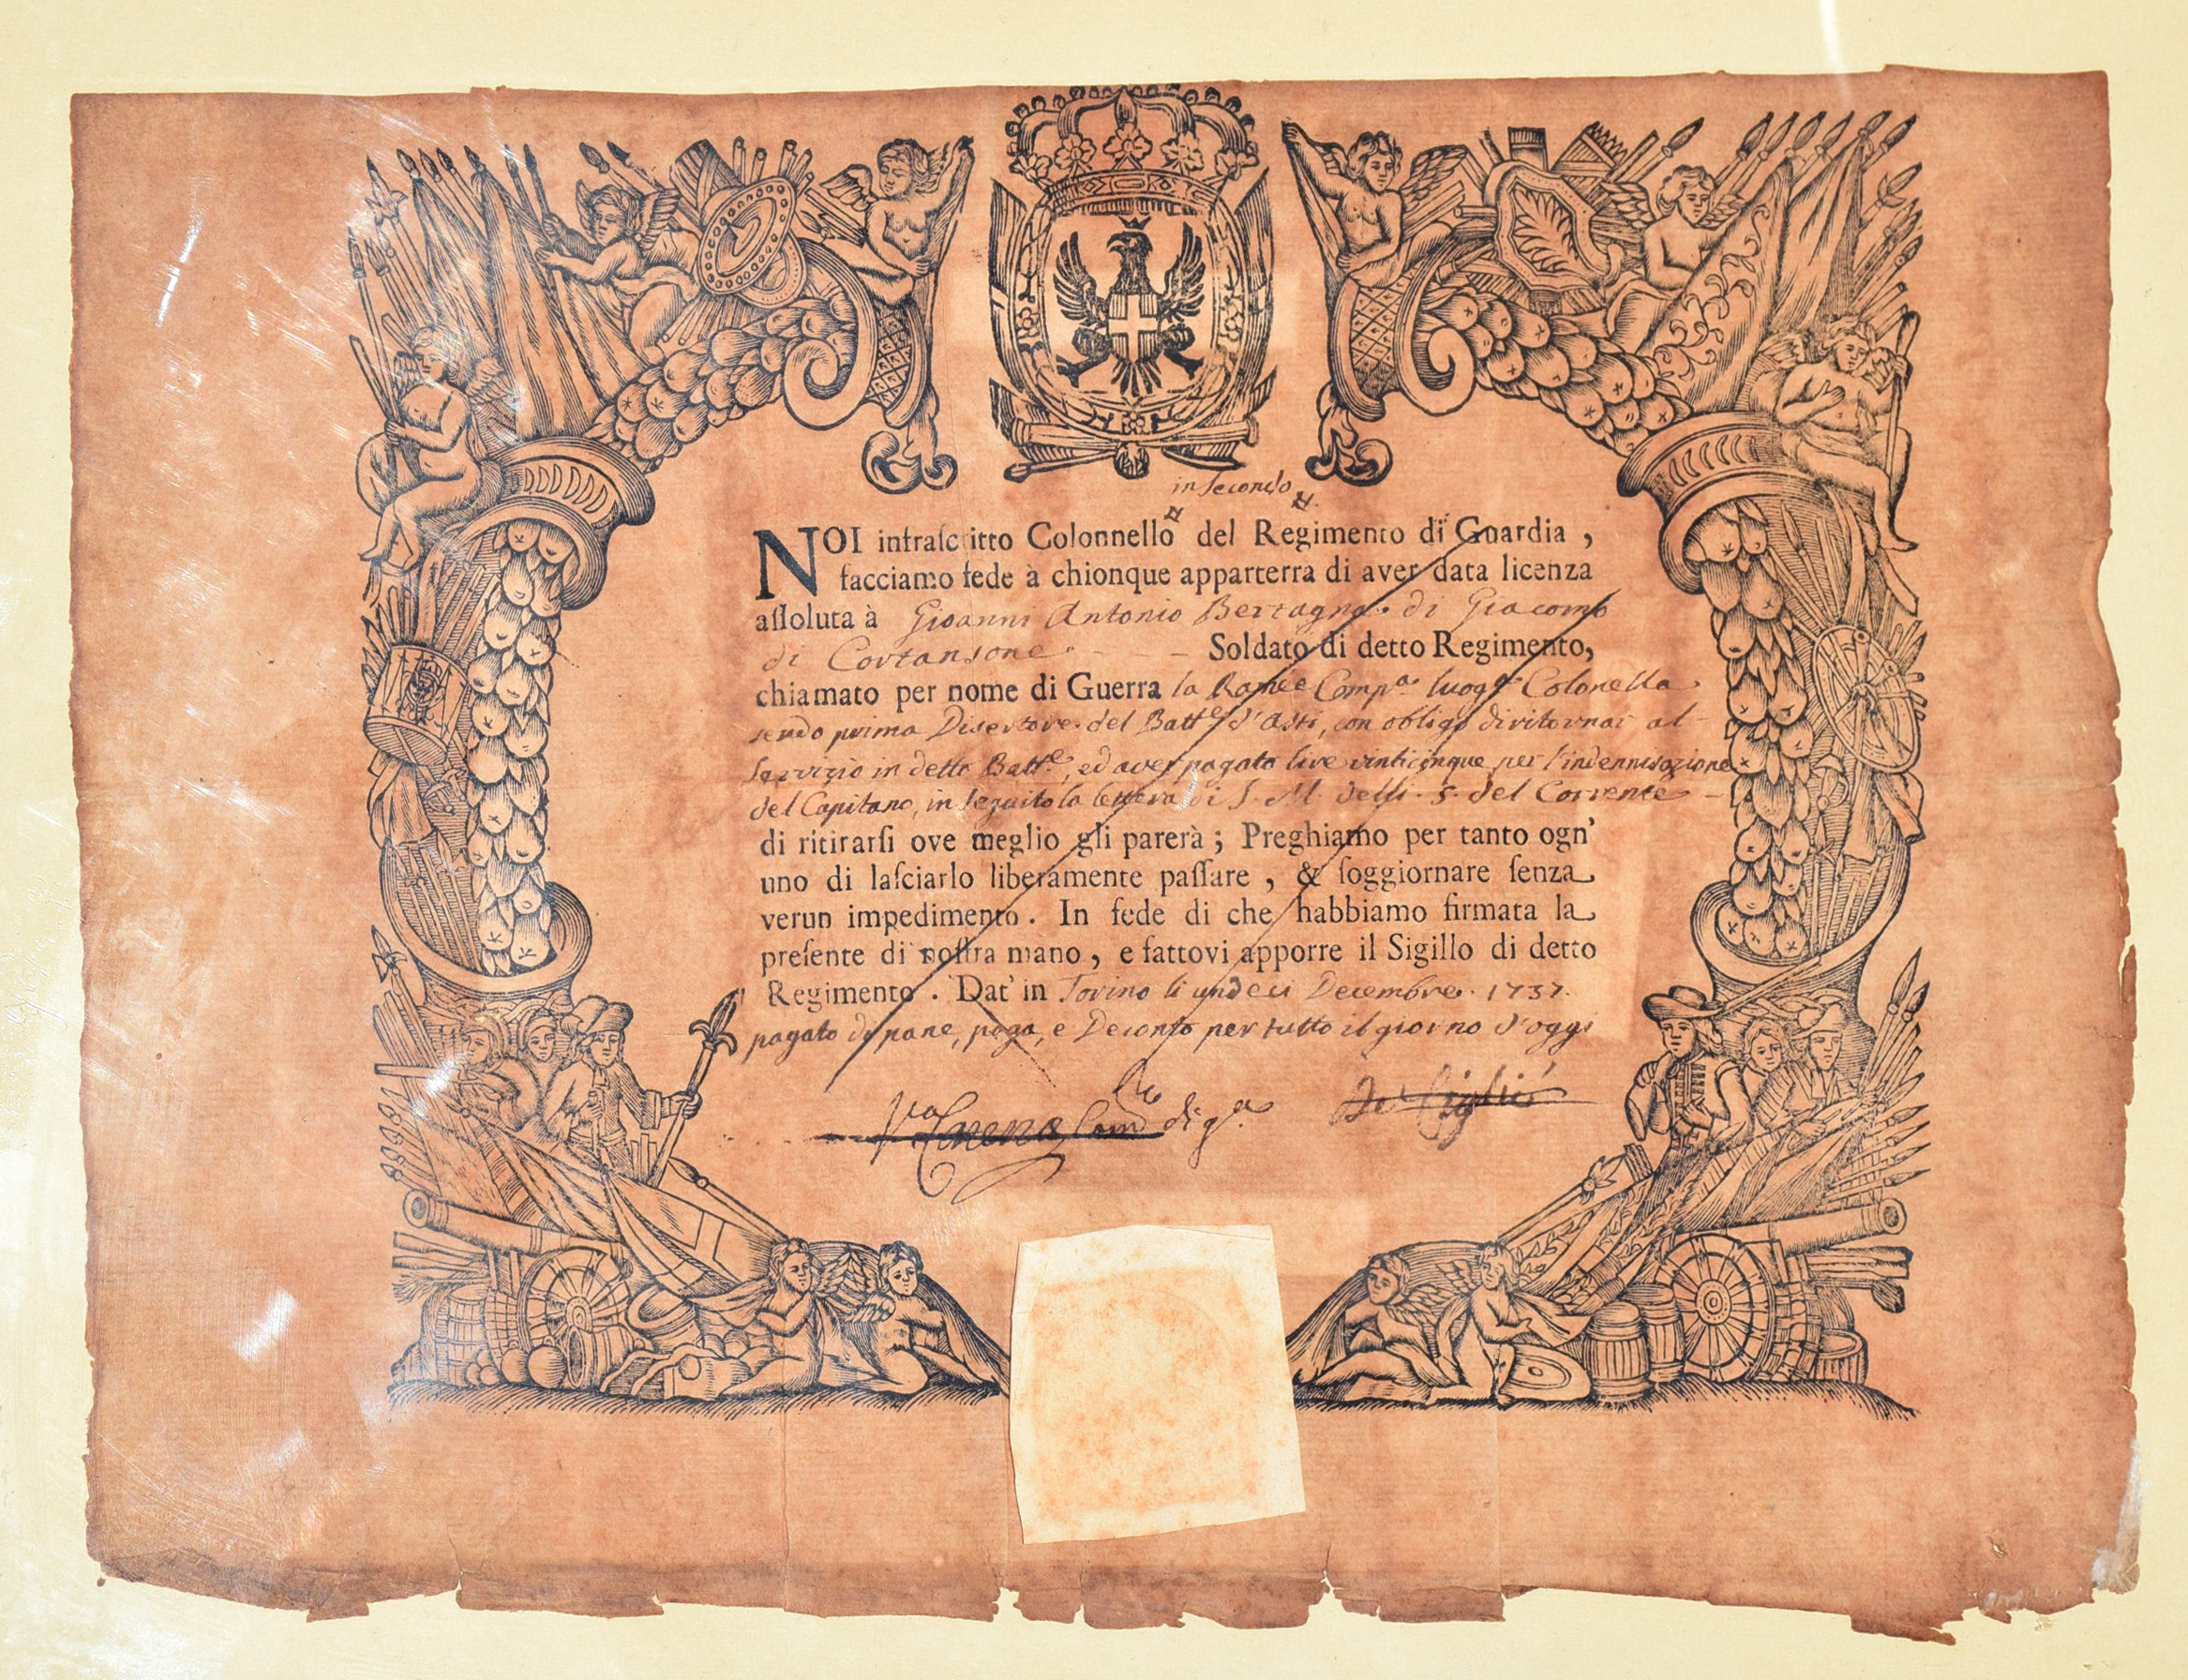 in secondo
NOI infraſcritto Colonnello del Regimento di Guardia ,
facciamo fede à chionque apparterra di aver data licenza
aſſoluta à Gioanni Antonio Bertagna di Giacomo
di Cortansone Soldato di detto Regimento,
chiamato per nome di Guerra la Ramée Compª luogte Colonella
sendo prima Disertore del Battne d'Asti, con obligo di ritornar al
Servizio in detto Battne, ed aver pagato lire vinticinque per l'indennisazione
del Capitano, in seguito la lettera di S. M. delli 5 del Corrente
di ritirarſi ove meglio gli parerà ; Preghiamo per tanto ogn'
uno di laſciarlo liberamente paſſare , & ſoggiornare ſenza
verun impedimento . In fede di che habbiamo firmata la
preſente di noſtra mano , e fattovi apporre il Sigillo di detto
Regimento . Dat' in Torino li undeci Decembre 1737.
pagato di pane, paga, e Deconto per tutto il giorno d'oggi